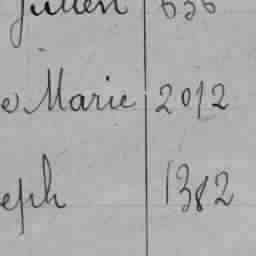 Julien 636
e Marie 2012
eph 1382